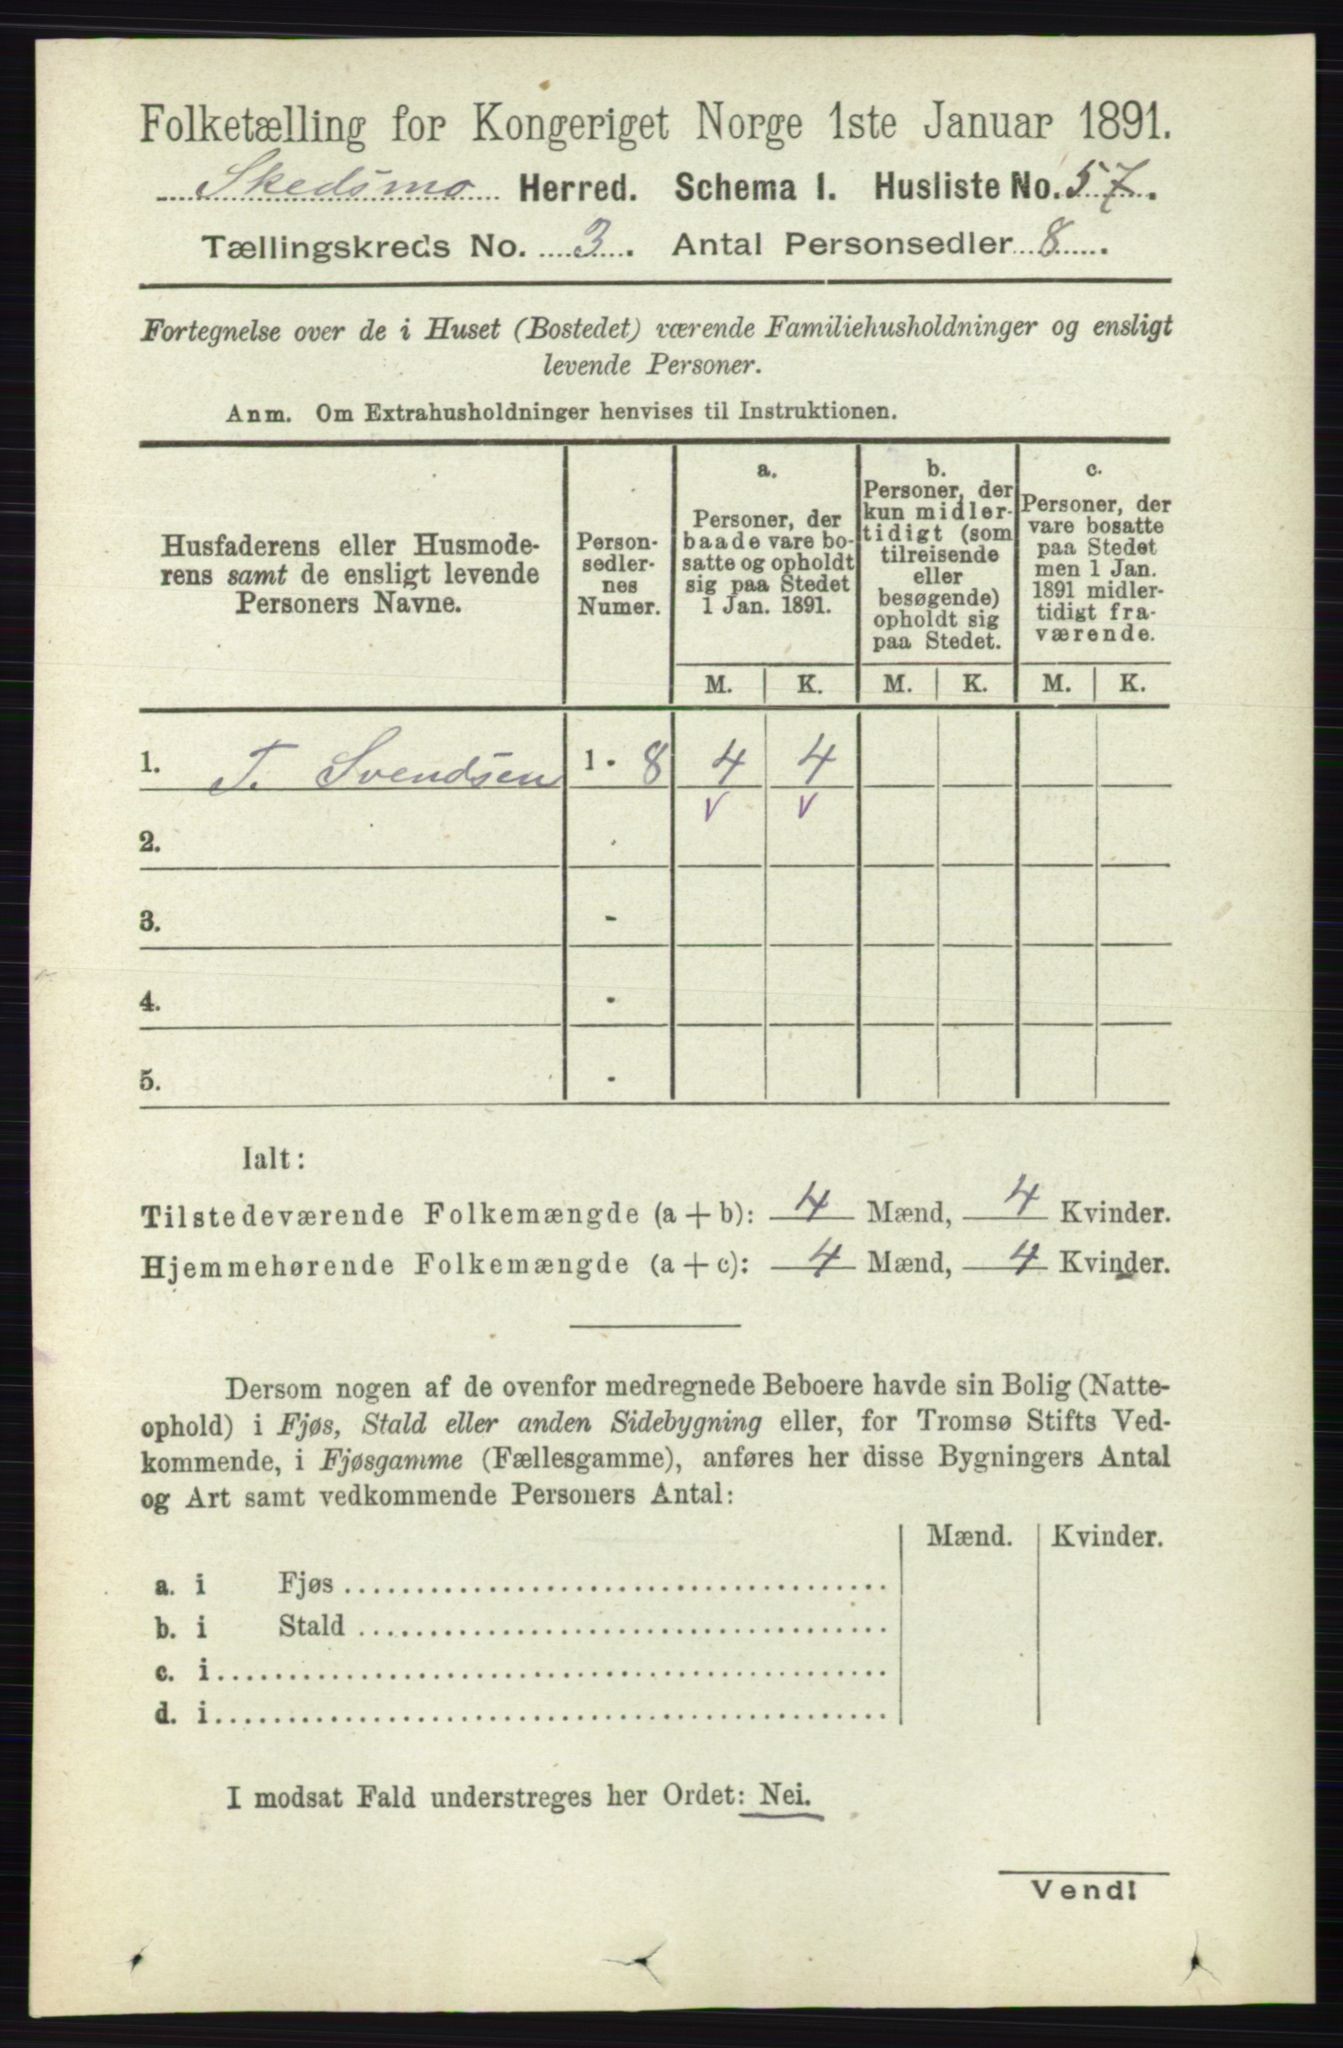 Folketælling for Kongeriget Norge 1ste Januar 1891.
Skedsmo Herred. Schema 1. Husliste No. 57.
Tællingskreds No. 3. Antal Personsedler 8.
Fortegnelse over de i Huset (Bostedet) værende Familiehusholdninger og ensligt
levende Personer.
Anm. Om Extrahusholdninger henvises til Instruktionen.
Husfaderens eller Husmode-
rens samt de ensligt levende
Personers Navne.
Person-
sedler-
nes
Numer.
a.
Personer, der
baade vare bo-
satte og opholdt
sig paa Stedet
1 Jan. 1891.
b.
Personer, der
kun midler-
tidigt (som
tilreisende
eller
besøgende)
opholdt sig
paa Stedet.
c.
Personer, der
vare bosatte
paa Stedet
men 1 Jan.
1891 midler-
tidigt fra-
værende.
M. K. M. K. M. K.
1. T. Svendsen 1 - 8 4 4
v v
2.
3. -
4. -
5. -
Ialt:
Tilstedeværende Folkemængde (a + b): 4 Mænd, 4 Kvinder.
Hjemmehørende Folkemængde (a + c): 4 Mænd, 4 Kvinder.
Dersom nogen af de ovenfor medregnede Beboere havde sin Bolig (Natte-
ophold) i Fjøs, Stald eller anden Sidebygning eller, for Tromsø Stifts Ved-
kommende, i Fjøsgamme (Fællesgamme), anføres her disse Bygningers Antal
og Art samt vedkommende Personers Antal:
Mænd. Kvinder.
a. i Fjøs
b. i Stald
c. i
d. i
I modsat Fald understreges her Ordet: Nei.
Vend!